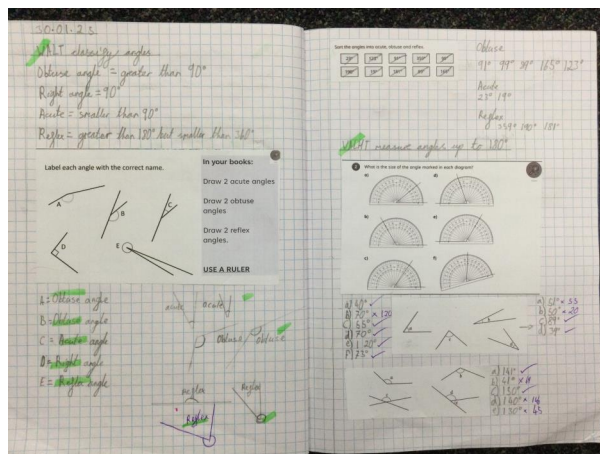 30.01.23
WALT classify angles
Obtuse angle = greater than 90°
Right angle = 90°
Acute = smaller than 90°
Reflex = greater than 180° but smaller than 360°
Label each angle with the correct name.
A
B
C
D
E
In your books:
Draw 2 acute angles
Draw 2 obtuse
angles
Draw 2 reflex
angles.
USE A RULER
A = Obtuse angle
B = Obtuse angle
C = Acute angle
D = Right angle
E = Reflex angle
acute
acute
obtuse
obtuse
reflex
Reflex
Reflex
Sort the angles into acute, obtuse and reflex.
Obtuse
91° 99° 95° 165° 123°
Acute
23° 19°
Reflex
359° 190° 181°
WALT measure angles up to 180°
What is the size of the angle marked in each diagram?
a)
d)
b)
e)
c)
f)
a) 40° ✓
b) 70° × 120
c) 55° ✓
d) 70° ✓
e) 120° ✓
f) 23° ✓
a) 51° × 55
b) 50° × 20
c) 89° ✓
d) 39° ✓
a) 141° ✓
b) 41°
c) 130° ✓
d) 140°
e) 130° × 45